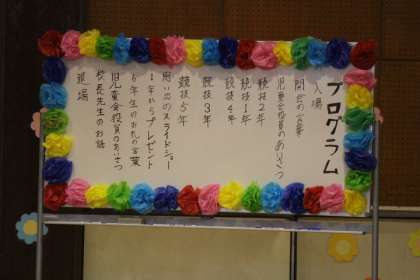 プログラム
入場
開会の言葉
児童会役員のあいさつ
競技2年
競技1年
競技4年
競技3年
競技5年
思い出のスライドショー
1年からプレゼント
6年生のお礼の言葉
旧児童会役員のあいさつ
校長先生のお話
退場